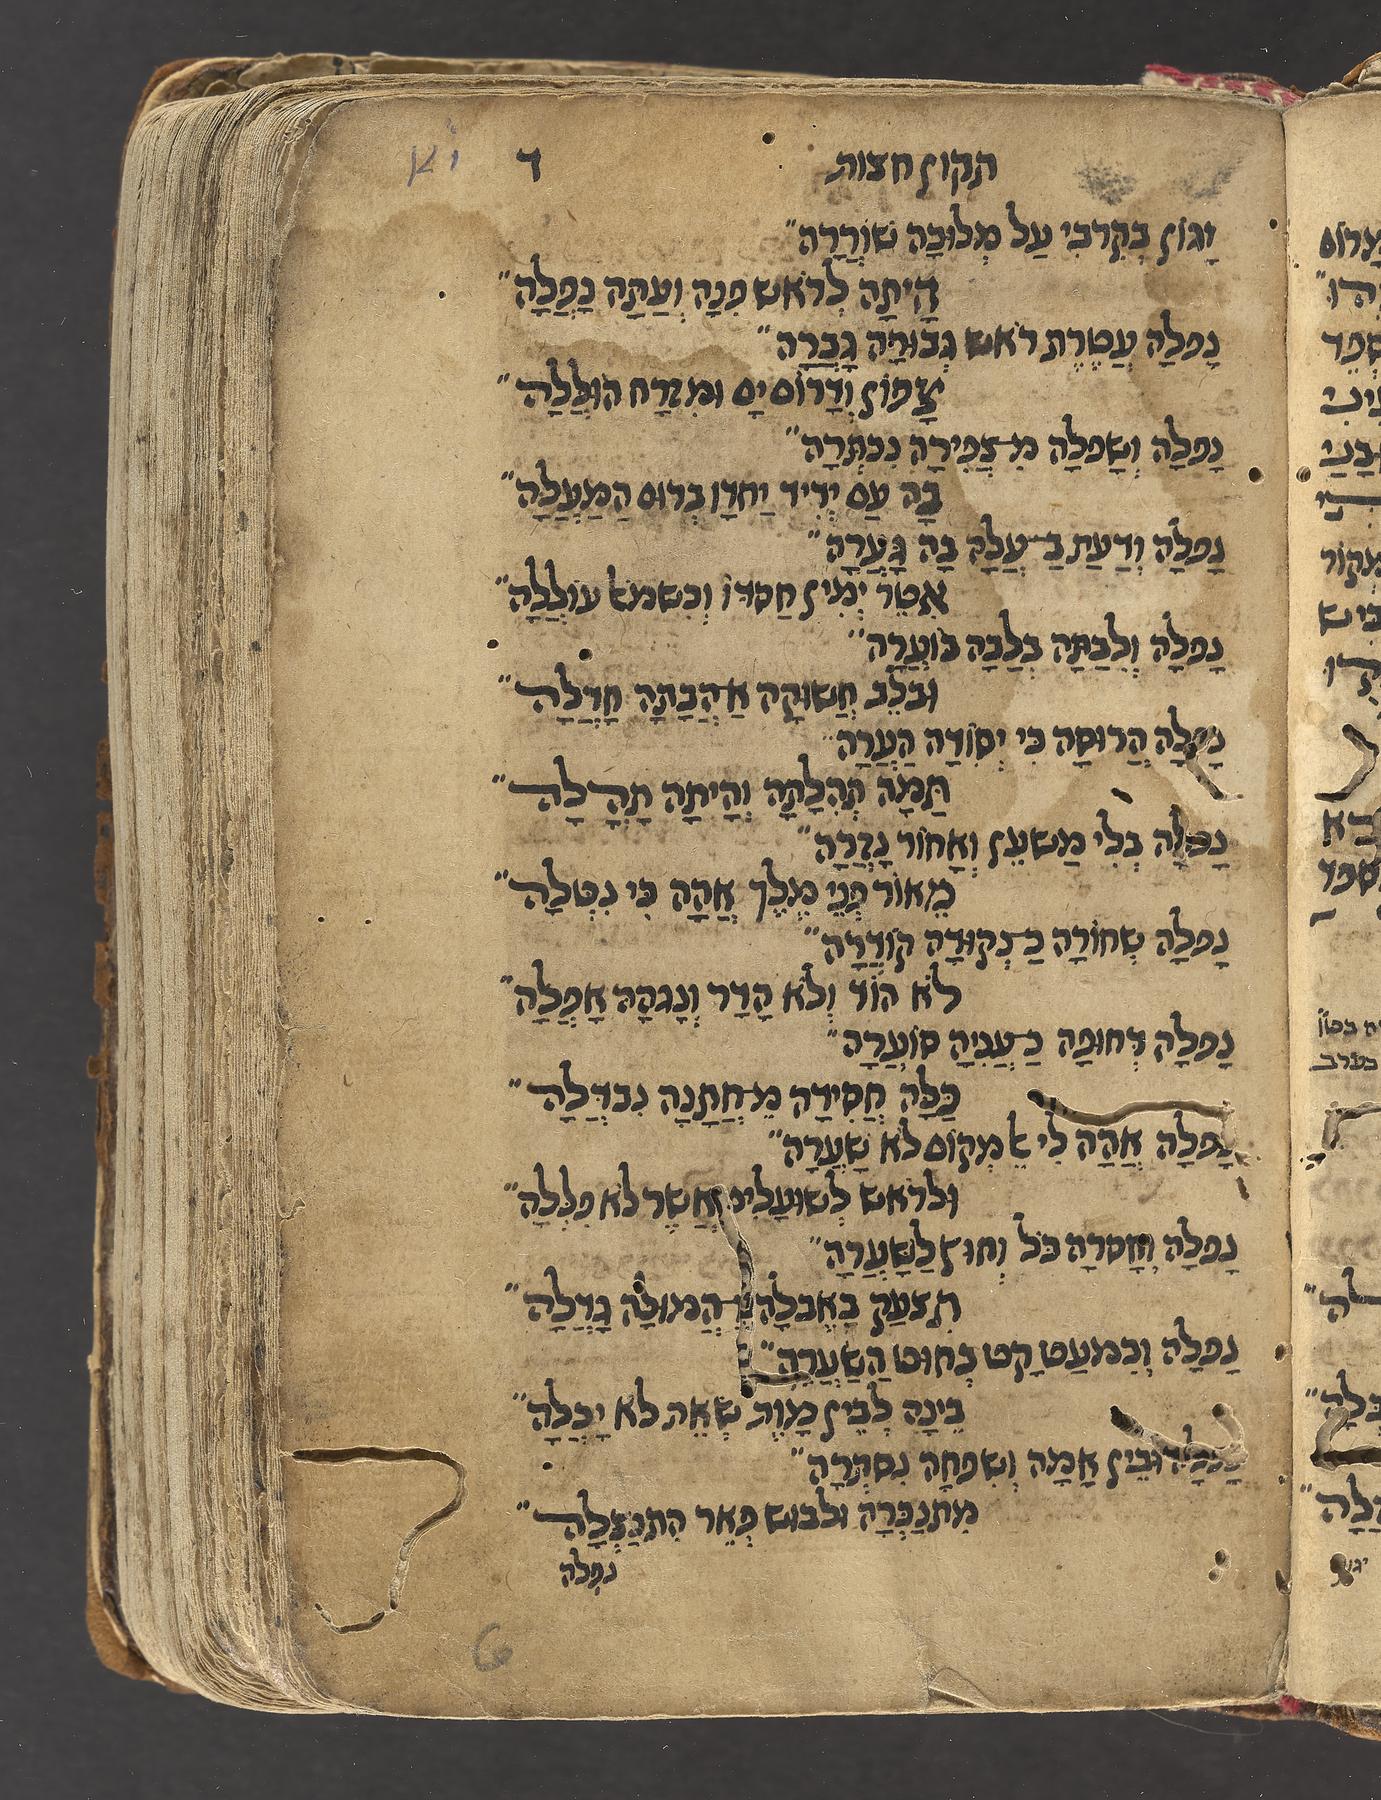 תקון חצות ד
יָגוֹן בְּקִרְבִּי עַל מְלוּכָה שׁוֹרֲרָה"
הָיְתָה לְרֹאשׁ פִּנָה וְעַתָּה נָפְלָה"
נָפְלָה עֲטֶרֶת רֹאשׁ גְּבוּרָה גָּבְרָה"
צָפוֹן וְדָרוֹם יָם וּמִזְרָח הוּגְלְלָה"
נָפְלָה וְשָׁפְלָה מִצְּפִירָה נִכְתְּרָה"
בָּהּ עַם יְדִיד יַחְדָּו בְּרוּם הַמַּעֲלָה"
נָפְלָה וְדַעַת בַּעֲלָהּ בָּהּ גָּעֲרָה"
אִטֵּר יְמִין חַסְדּוֹ וְכִשְׂמֹא עוֹלֲלָה"
נָפְלָה וְלִבַּתָה בְּלַבָּה בּוֹעֲרָה"
וּבְלֵב חֲשׁוּקָהּ אַהֲבָתָהּ חָדְלָה"
נָפְלָה הֲרוּסָה כִּי יְסוֹדָהּ הֻעֲרָה"
תַּמָּה תְּהִלָּתָהּ וְהָיְתָה תָּהֳלָה"
נָפְלָה בְּלִי מַשְׁעֵן וְאָחוֹר נָזְרָה"
מֵאוֹר פְּנֵי מֶלֶךְ אֲהָהּ כִּי נִטְּלָה"
נָפְלָה שְׁחוֹרָה כַּנְּקוּדָּה קוֹדֲרָה"
לֹא הוֹד וְלֹא הָדָר וְנָגְהָהּ אָפְלָה"
נָפְלָה דְּחוּפָה כַּעֲנִיָּה סוֹעֲרָה"
כַּלָּה חֲסִידָה מֵחֲתָנָהּ נִבְדְּלָה"
נָפְלָה אֲהָהּ לִי אֵ מְקוֹם לֹא שָׁעֲרָה"
וּלְרֹאשׁ לְשׁוּעָלִים אֲשֶׁר לֹא פִלְלָה"
נָפְלָה וְחָסְרָה כֹּל וְחוּץ לַשָּׁעֲרָה"
תִּצְעַק בְּאֶבְלָהּ הֲמוּלָּה גָּדְלָה"
נָפְלָה וְכִמְעַט קָט כְּחוּט הַשַּׂעֲרָה"
בֵּינָהּ לְבֵין מָוֶת שְׂאֵת לֹא יָכְלָה"
נָפְלָה וּבֵין אָמָה וְשִׁפְחָה נִסְתְּרָה"
מִתְנַכְּרָה וּלְבוּשׁ פְּאֵר הִתְנַצְּלָה"
נפלה
6